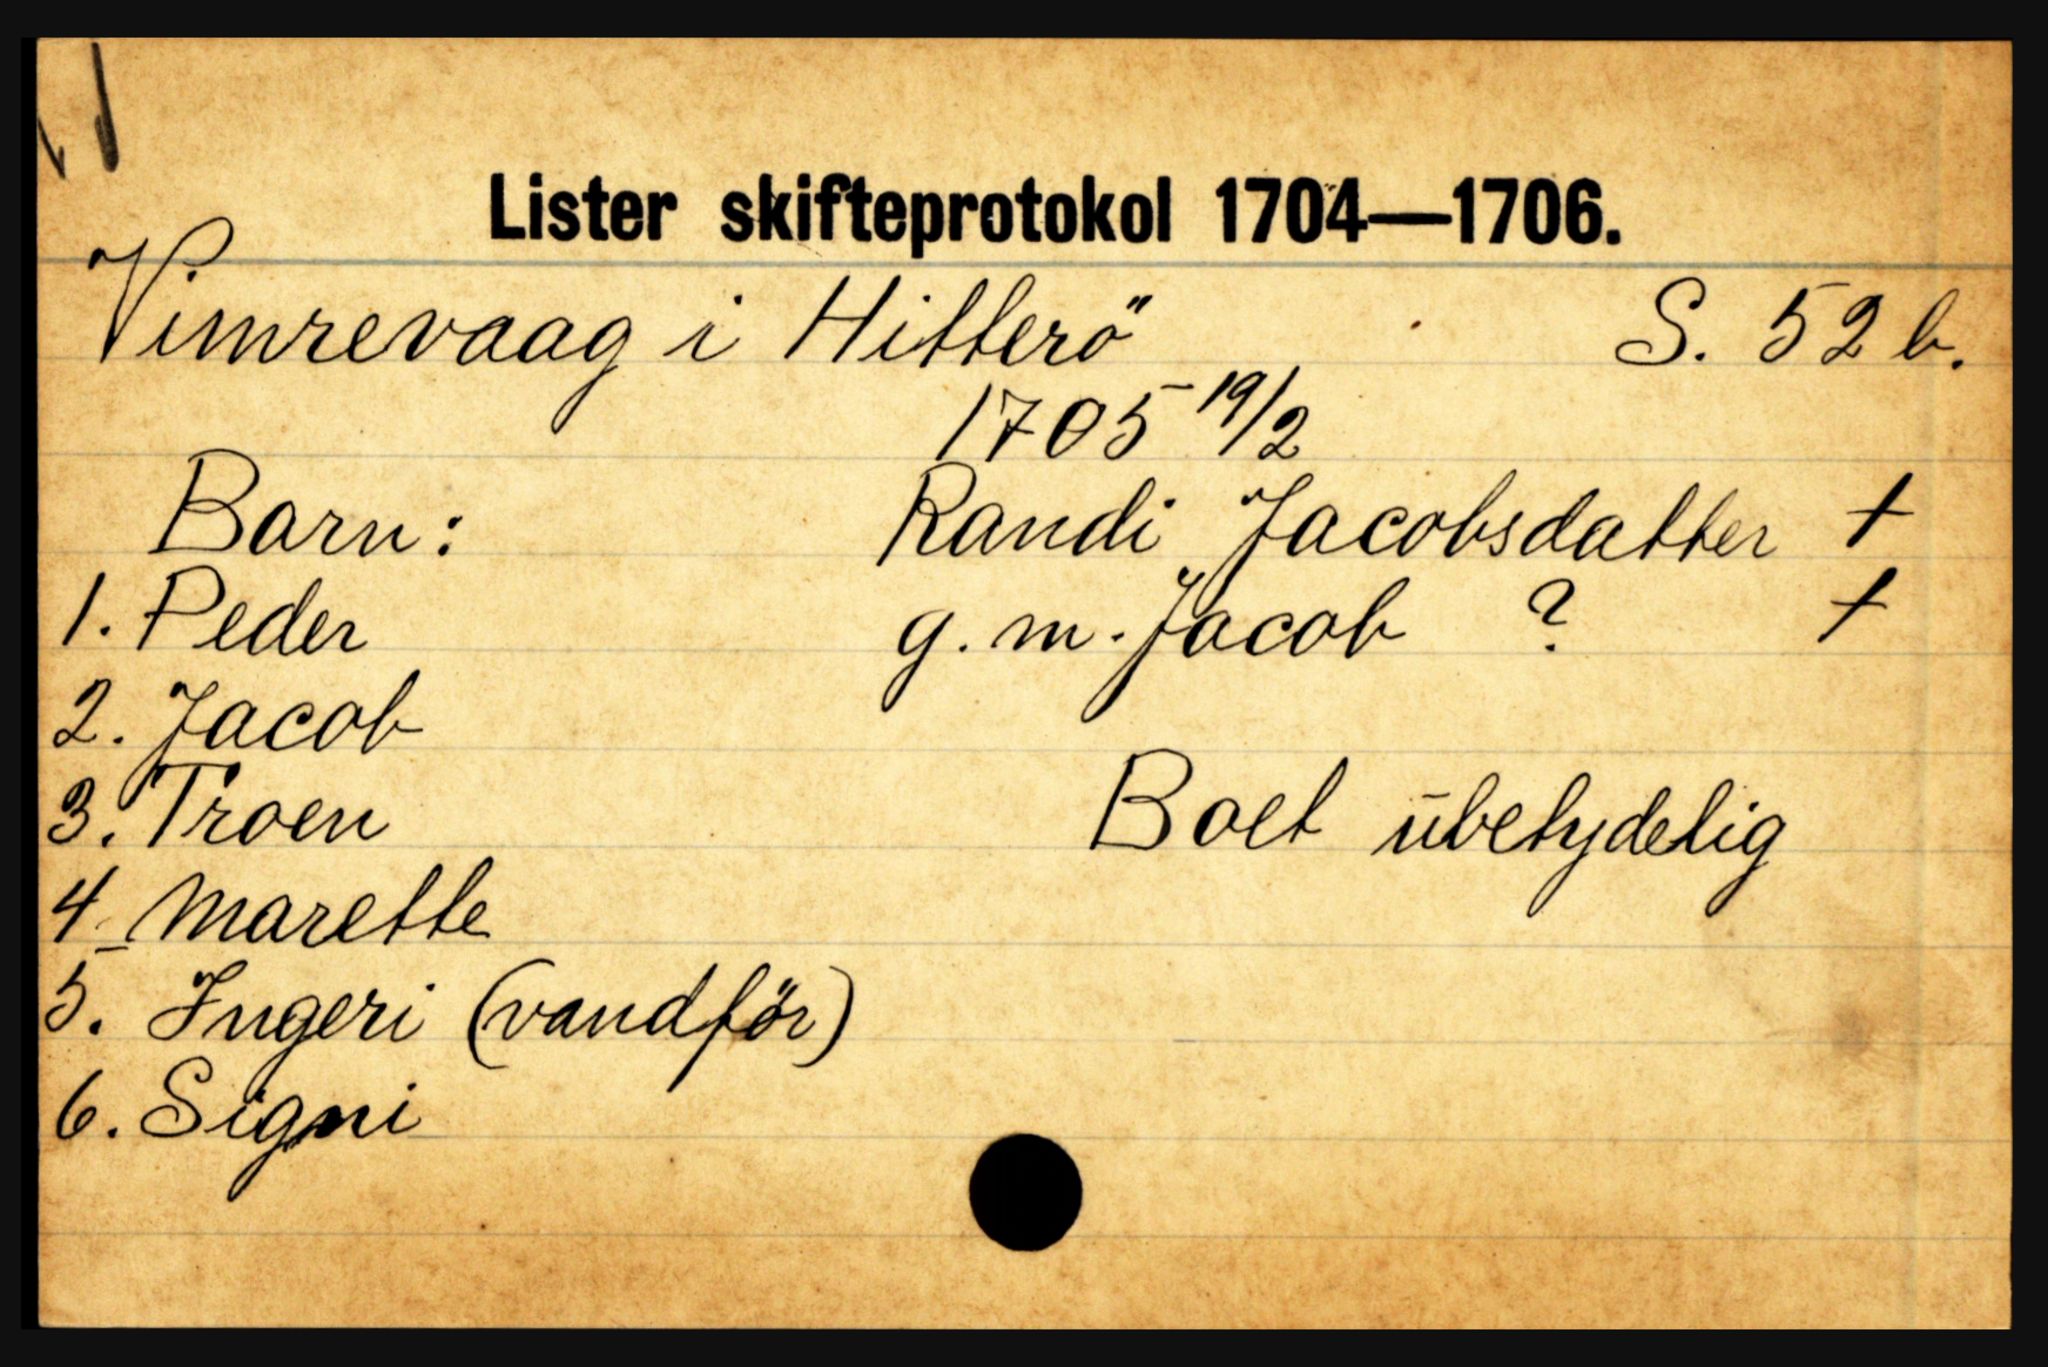 Lister skifteprotokol 1704—1706.
Vimrevaag i Hitterö S. 52 b.
1705 19/2
Barn: Randi Jacobsdatter †
1. Peder g. m. Jacob ? †
2. Jacob
3. Troen Boet ubetydelig
4. Marette
5. Ingeri (vandför)
6. Signi